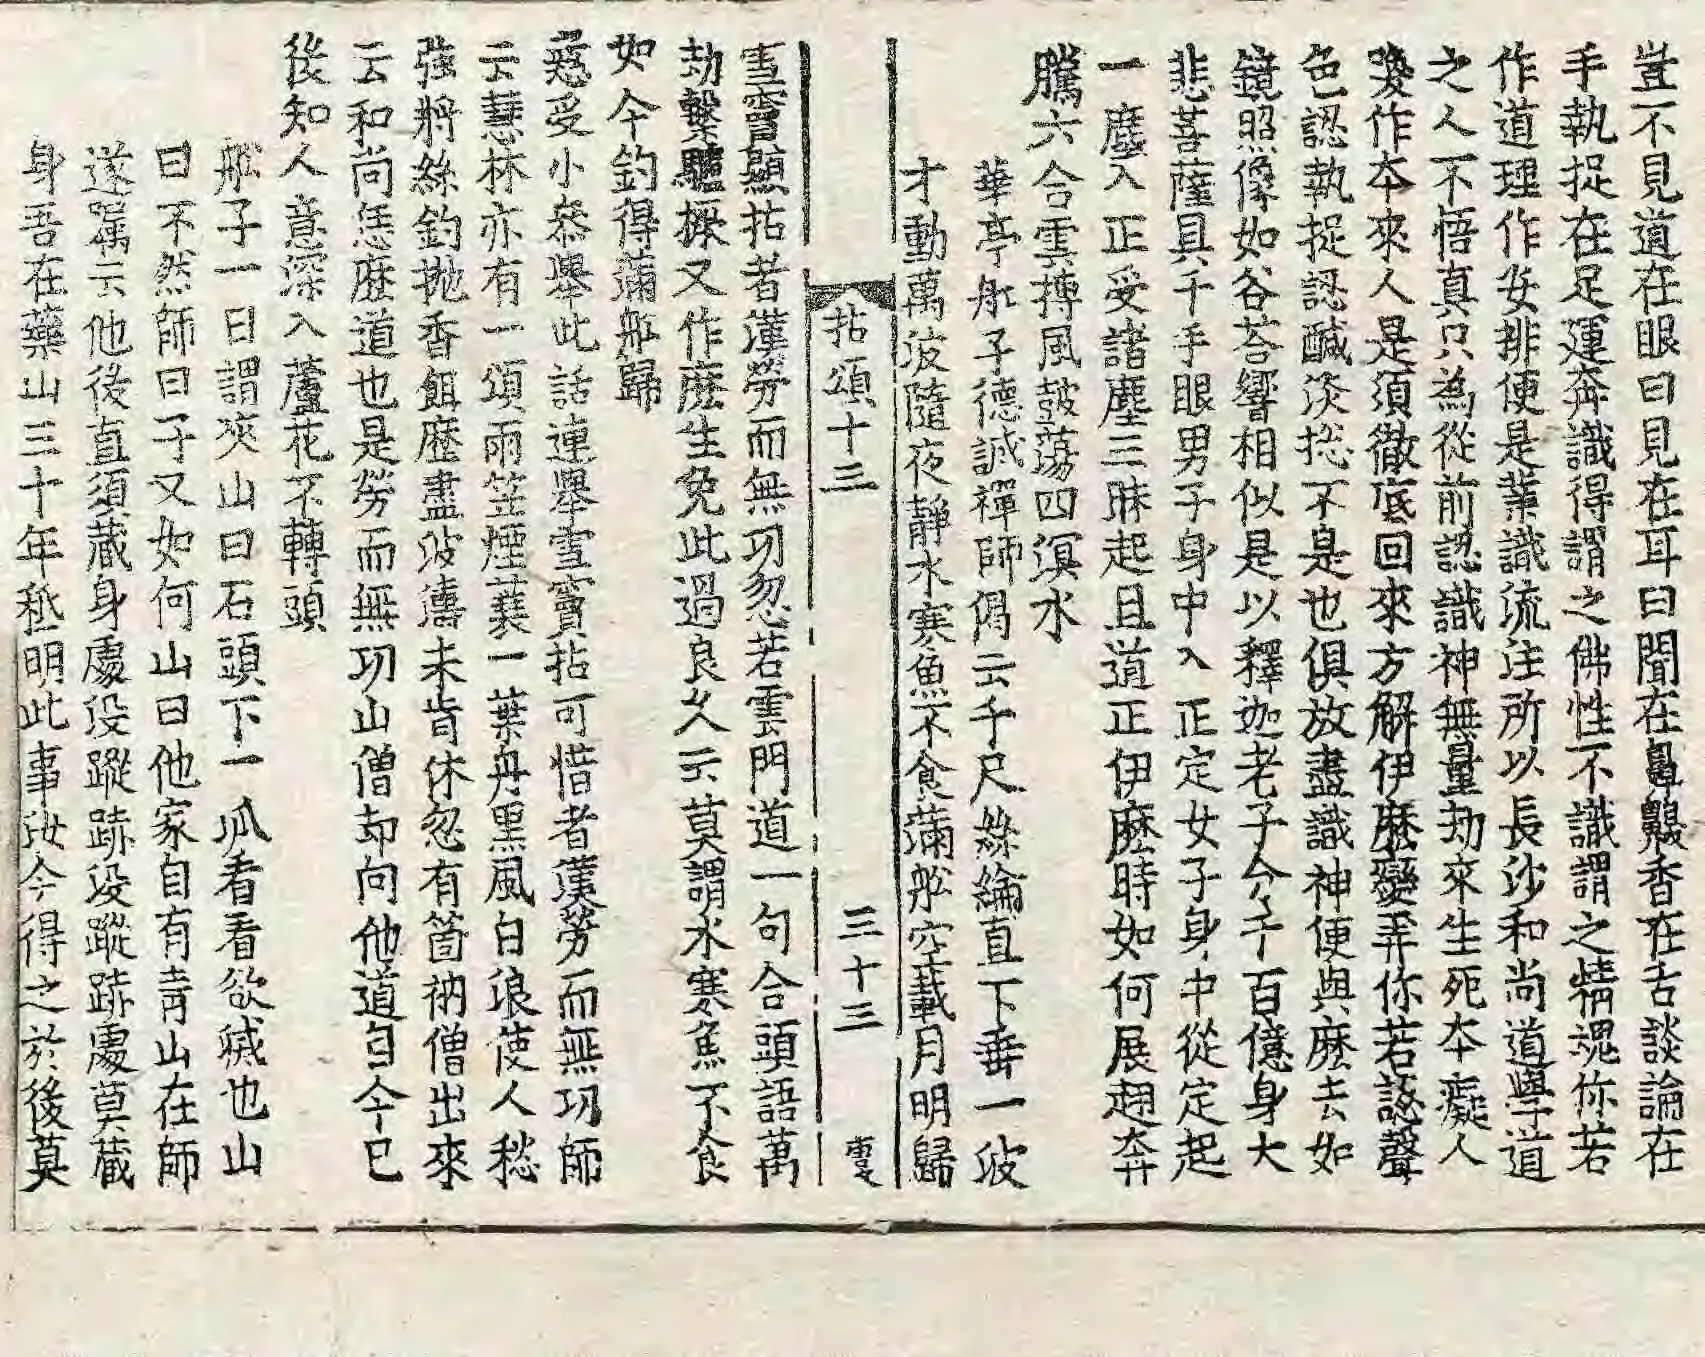 豈不見道在眼曰見在耳曰聞在鼻齅香在舌談論在
手執捉在足運奔識得謂之佛性不識謂之精魂你若
作道理作安排便是業識流注所以長沙和尚道學道
之人不悟真只為從前認識神無量劫來生死本癡人
喚作本來人是須徹底回來方解伊麽變弄你若認聲
色認執捉認醎淡揔不是也俱放盡識神便與麽去如
鏡照像如谷荅響相似是以釋迦老子分千百億身大
悲菩薩具千手眼男子身中入正定女子身中從定起
一塵入正受諸塵三昧起且道正伊麽時如何展翅奔
騰六合雲摶風皷蕩四溟水
華亭船子德誠禪師偈云千尺絲綸直下垂一波
才動萬波隨夜靜水寒魚不食滿船空載月明歸
拈頌十三 三十三
雪竇顯拈者漢勞而無功忽若雲門道一句合頭語萬
劫繫驢橛又作麽生免此過良久云莫謂水寒魚不食
如今釣得滿船歸
慈受小叅舉此話連舉雪竇拈可惜者漢勞而無功師
云慧林亦有一頌雨笠煙蓑一葉舟黑風白浪使人愁
強將絲釣拋香餌歷盡波濤未肯休忽有箇衲僧出來
云和尚恁麽道也是勞而無功山僧却向他道自今已
後知人意深入蘆花不轉頭
船子一日謂夾山曰石頭下一瓜看看欲墄也山
曰不然師曰子又如何山曰他家自有青山在師
遂囑云他後直須藏身處没蹤跡没蹤跡處莫藏
身吾在藥山三十年秪明此事汝今得之於後莫